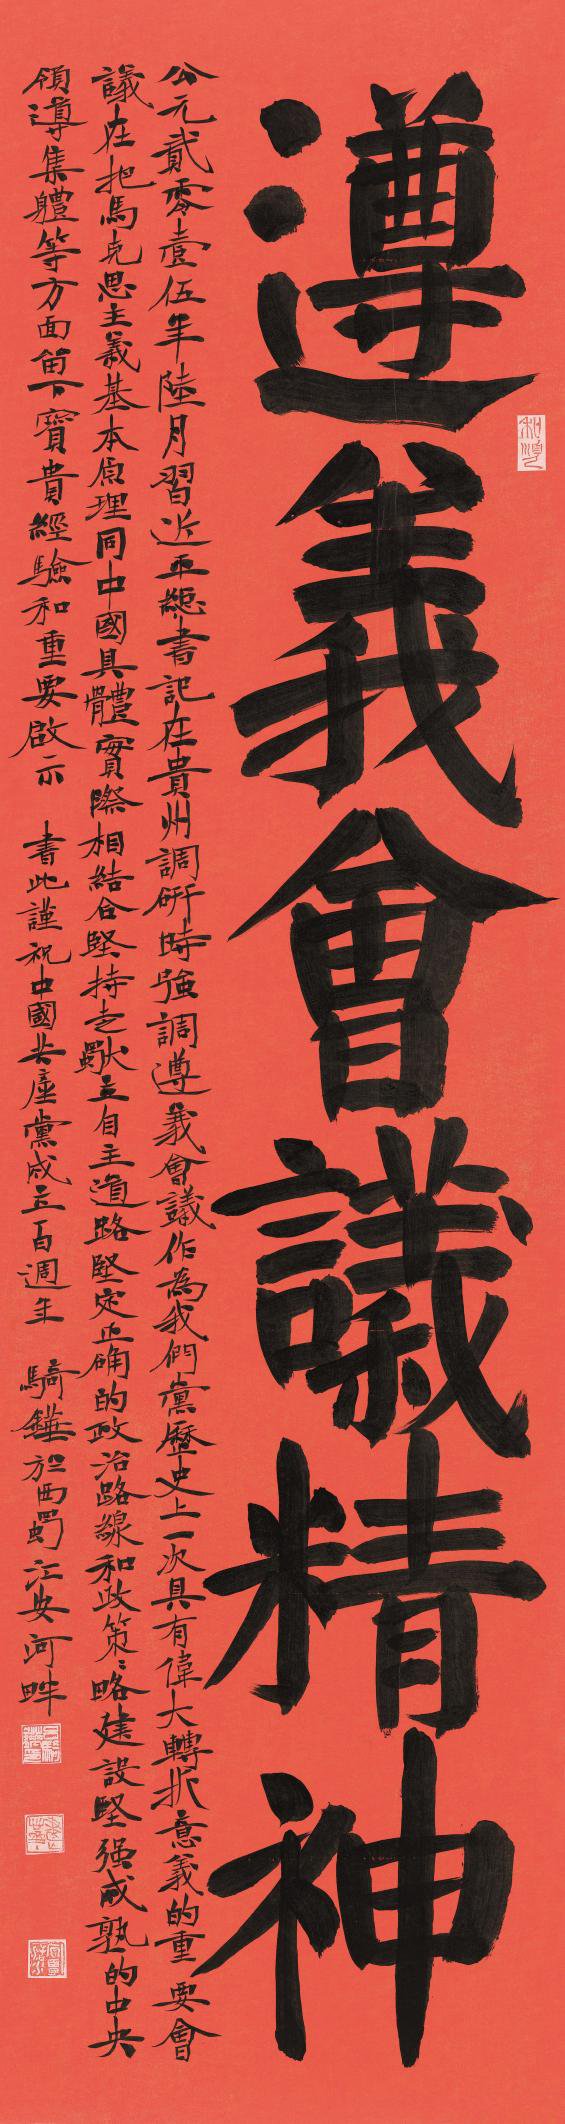 遵義會議精神
公元貳零壹伍年陸月習近平總書記在貴州調研時強調遵義會議作為我們黨歷史上一次具有偉大轉折意義的重要會
議在把馬克思主義基本原理同中國具體實際相結合堅持走獨立自主道路堅定正确的政治路線和政策策略建設堅强成熟的中央
領導集體等方面留下寶貴經驗和重要啟示 書此謹祝中國共產黨成立百週年 騎鏵於西蜀江安河畔